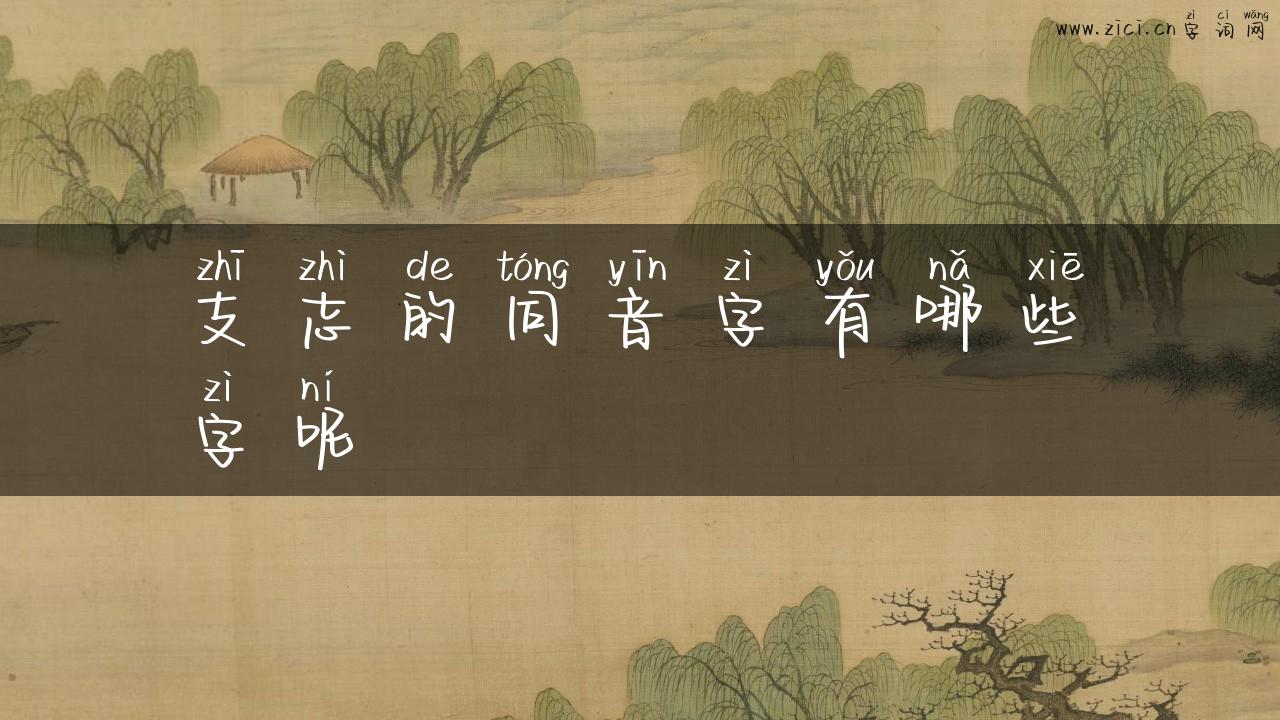 zì cí wǎng
www.zici.cn 字 词 网
zhī zhì de tóng yīn zì yǒu nǎ xiē
支 志 的 同 音 字 有 哪 些
zì ní
字 呢